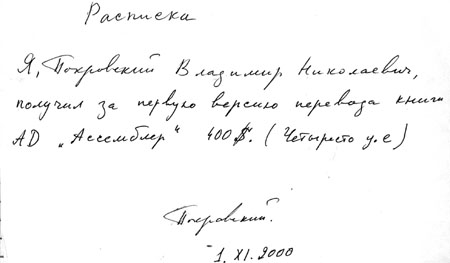 Расписка
Я, Покровский Владимир Николаевич,
получил за первую версию перевода книги
AD „Ассемблер“ 400$. (Четыресто у.е)
Покровский.
1. XI. 2000